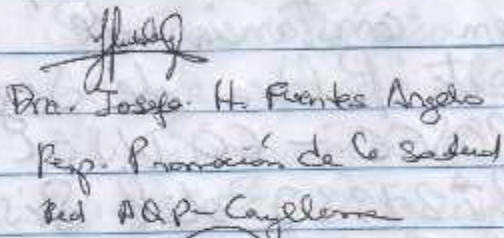 Dra. Josefa H. Fuentes Angelo
Resp. Promoción de la Salud
Red AQP-Caylloma